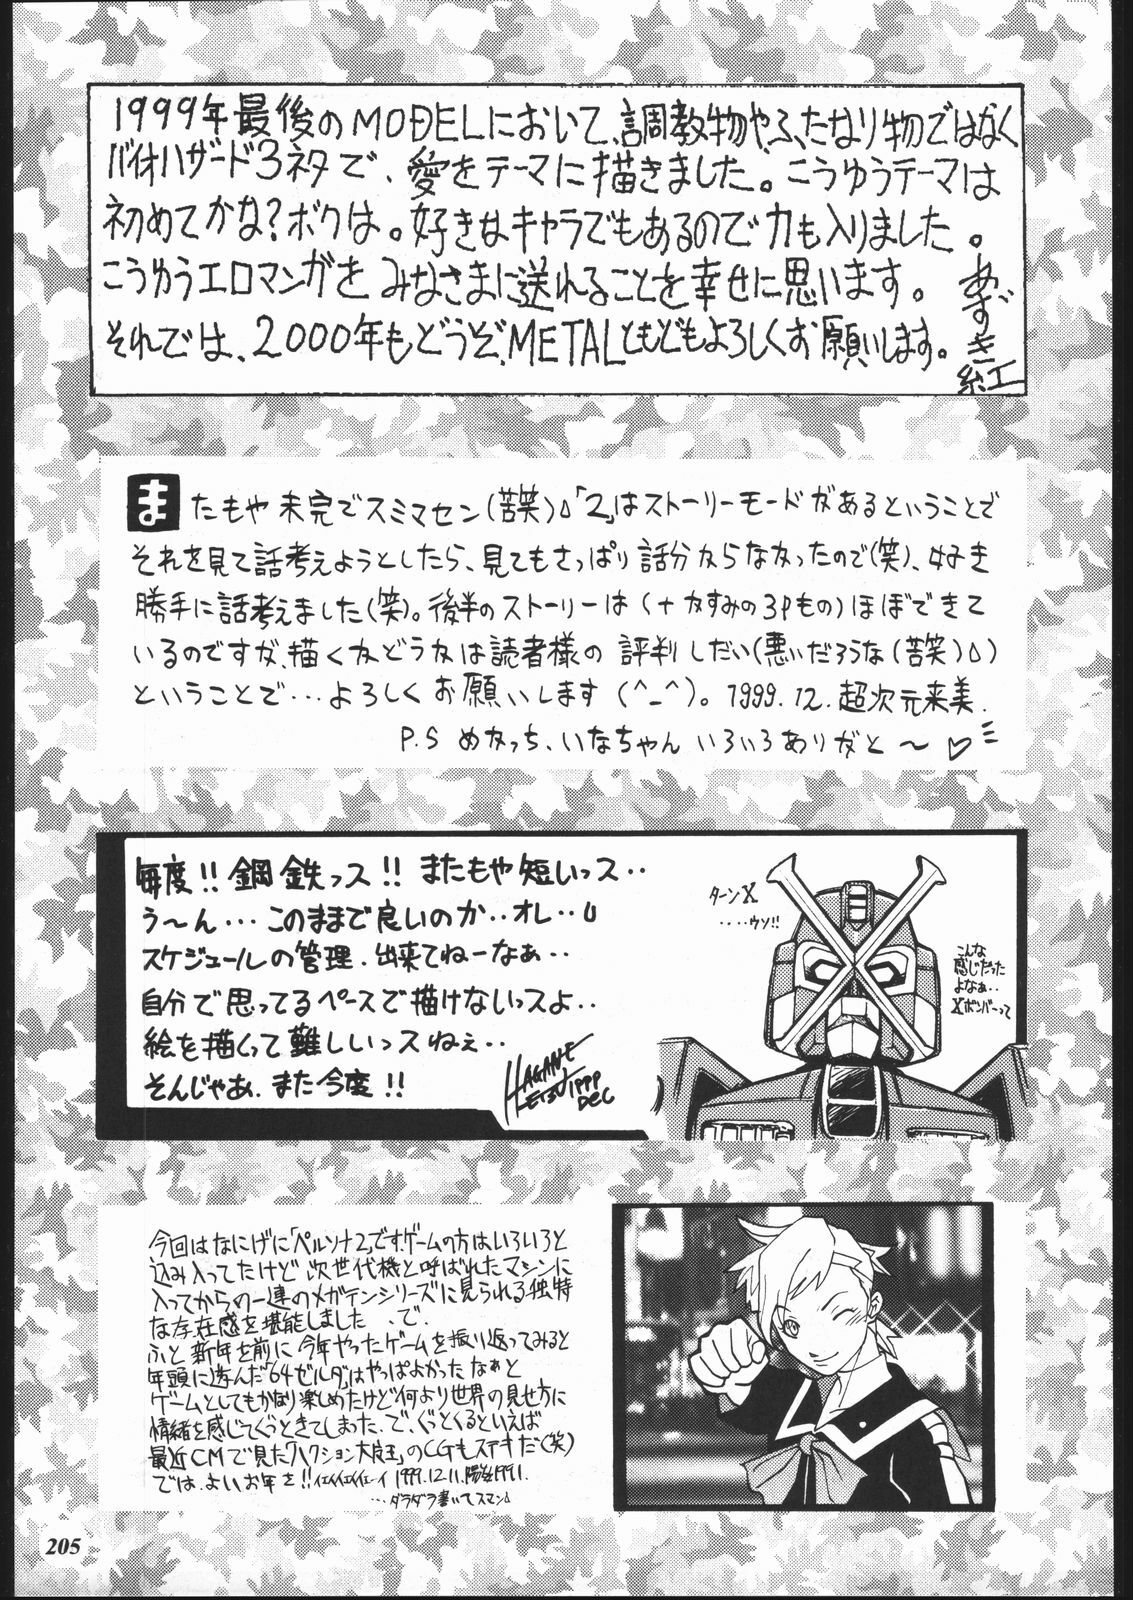 1999年最後のMODELにおいて、調教物やふたなり物ではなく
バイオハザード3ネタで、愛をテーマに描きました。こうゆうテーマは
初めてかな?ボクは。好きなキャラでもあるので力も入りました。
こうゆうエロマンガをみなさまに送れることを幸せに思います。
それでは、2000年もどうぞ、METALともどもよろしくお願いします。
あずき紅
またもや未完でスミマセン(苦笑)「2」はストーリーモードがあるということで
それを見て話考えようとしたら、見てもさっぱり話分からなかったので(笑)、好き
勝手に話考えました(笑)。後半のストーリーは(+かすみの3Pもの)ほぼできて
いるのですが、描くかどうかは読者様の評判しだい(悪いだろうな(苦笑))
ということで…よろしくお願いします(^_^)。1999.12.超次元来美.
P.S めかっち、いなちゃん いろいろありがと〜♡
毎度!!鋼鉄っス!!またもや短いっス‥
う〜ん…このままで良いのか‥オレ‥
スケジュールの管理.出来てねーなぁ‥
自分で思ってるペースで描けないっスよ‥
絵を描くって難しいっスねぇ‥
そんじゃあ.また今度!!
HAGANE TETSU 1999 DEC
ターンX
‥‥ウソ!!
こんな
感じだった
よなぁ‥
Xボンバーって
今回はなにげに「ペルソナ2」です.ゲームの方はいろいろと
込み入ってたけど次世代機と呼ばれたマシンに
入ってからの一連のメガテンシリーズに見られる独特
な存在感を堪能しました 、で.
ふと新年を前に今年やったゲームを振り返ってみると
年頭に遊んだ「64ゼルダ」はやっぱよかったなぁと
ゲームとしてもかなり楽しめたけど何より世界の見せ方に
情緒を感じてぐっときてしまった.で、ぐっとくるといえば
最近CMで見た「ハクション大魔王」のCGもステキだ(笑)
では、よいお年を!!イェイイェイイェーイ 1999.12.11.
…ダラダラ書いてスマン
205